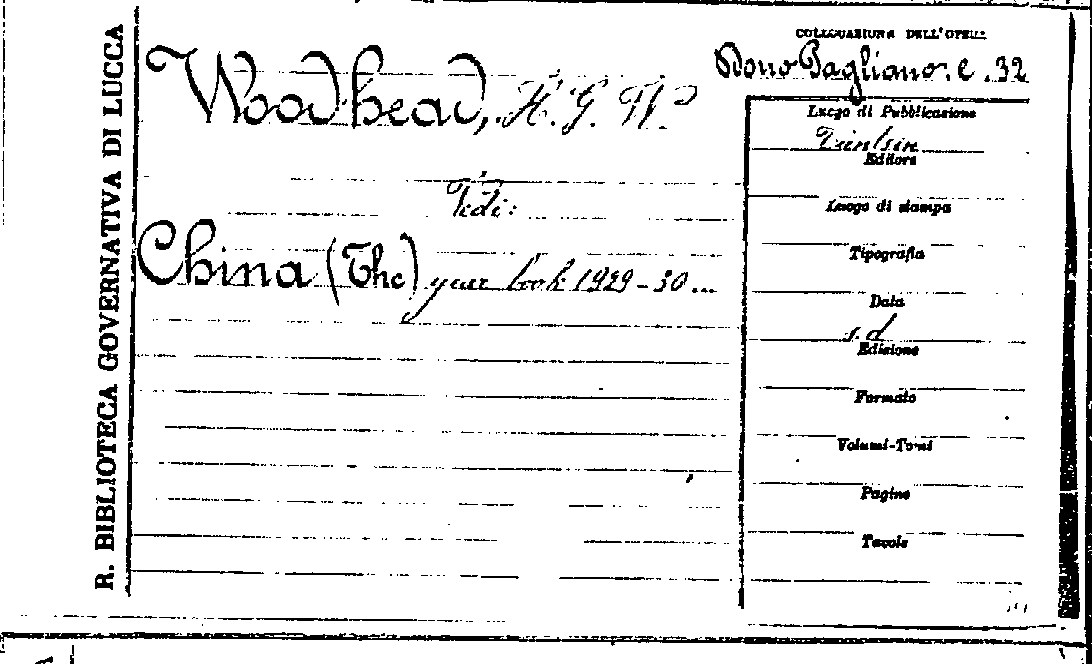 R. BIBLIOTECA GOVERNATIVA DI LUCCA
COLLOCAZIONE DELL'OPERA
Dono Pagliano. e. 32
Woodhead, H. G. W.
Vedi:
China (The) year book 1929-30...
Luogo di Pubblicazione
Tintsin
Editore
Luogo di stampa
Tipografia
Data
s.d
Edizione
Formato
Volumi-Tomi
Pagine
Tavole